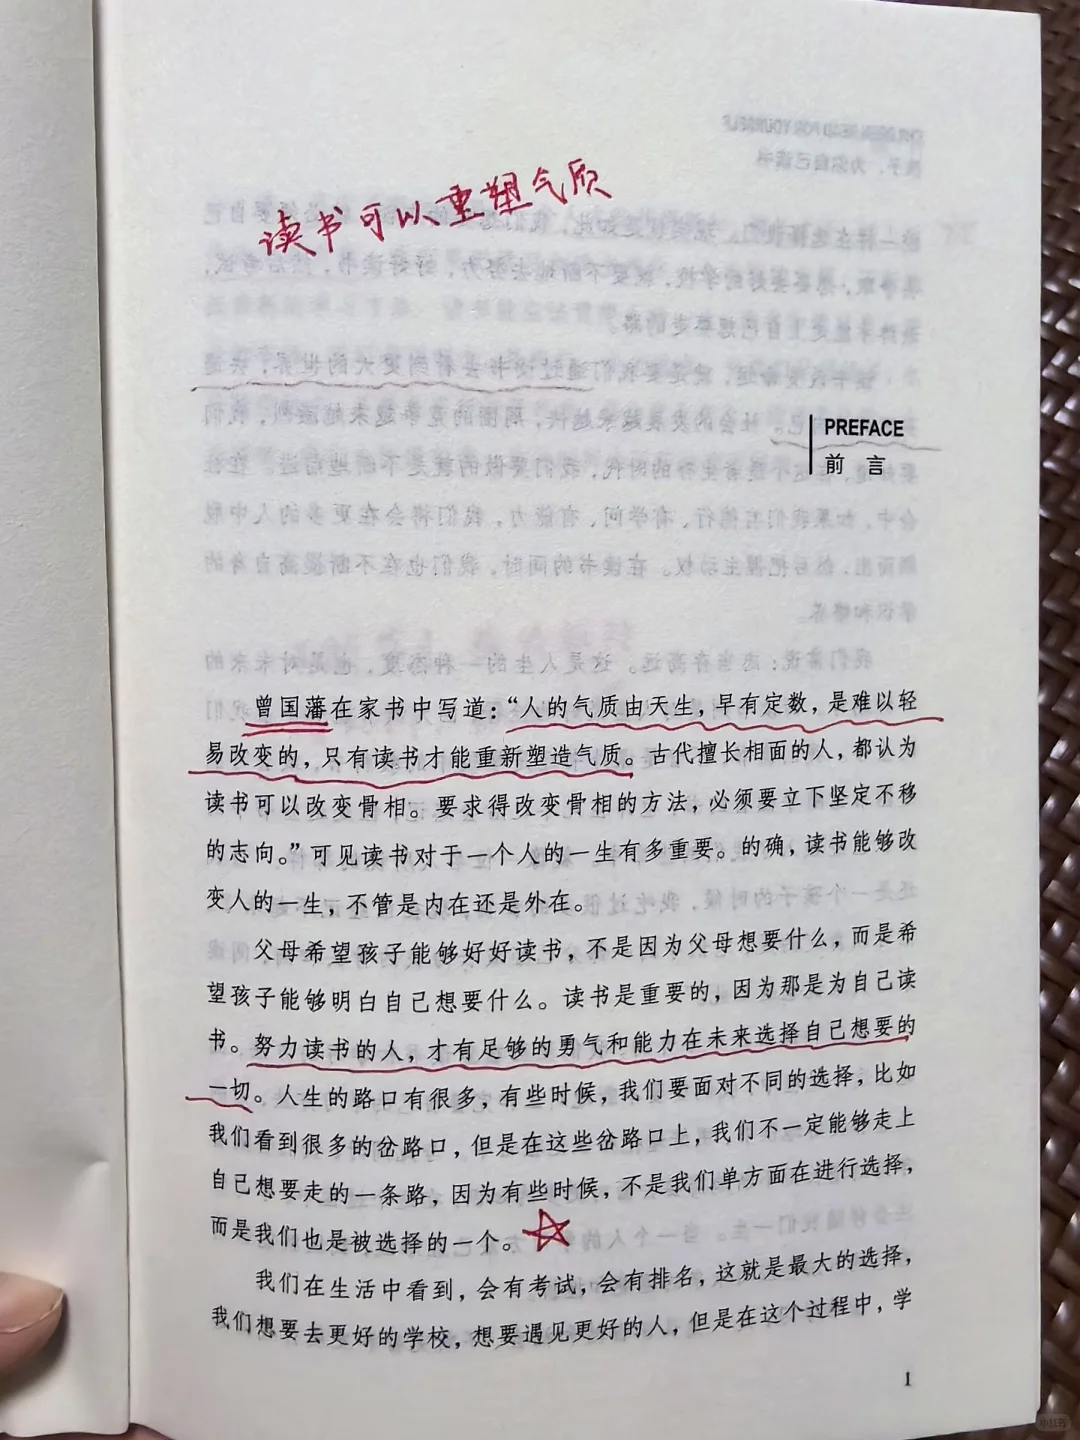 读书可以重塑气质
PREFACE
前言
曾国藩在家书中写道：“人的气质由天生，早有定数，是难以轻
易改变的，只有读书才能重新塑造气质。古代擅长相面的人，都认为
读书可以改变骨相。要求得改变骨相的方法，必须要立下坚定不移
的志向。”可见读书对于一个人的一生有多重要。的确，读书能够改
变人的一生，不管是内在还是外在。
父母希望孩子能够好好读书，不是因为父母想要什么，而是希
望孩子能够明白自己想要什么。读书是重要的，因为那是为自己读
书。努力读书的人，才有足够的勇气和能力在未来选择自己想要的
一切。人生的路口有很多，有些时候，我们要面对不同的选择，比如
我们看到很多的岔路口，但是在这些岔路口上，我们不一定能够走上
自己想要走的一条路，因为有些时候，不是我们单方面在进行选择，
而是我们也是被选择的一个。
我们在生活中看到，会有考试，会有排名，这就是最大的选择，
我们想要去更好的学校，想要遇见更好的人，但是在这个过程中，学
1
小红书